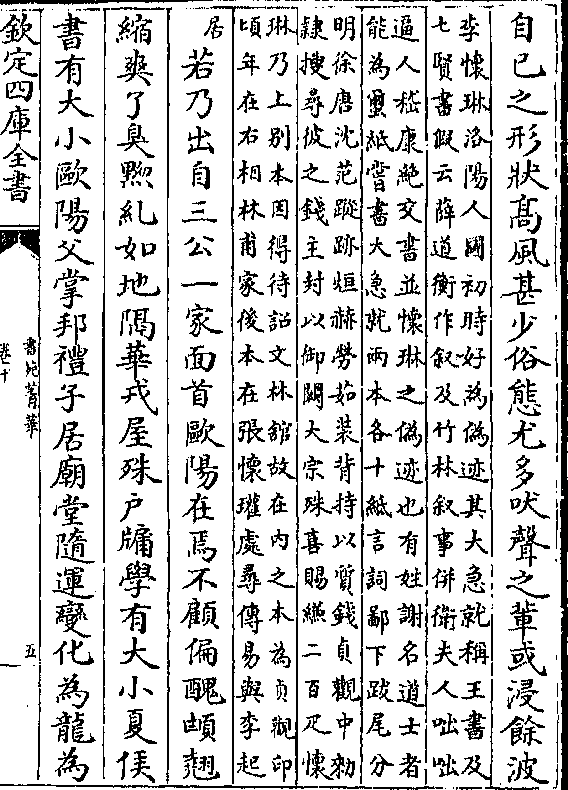 自已之形狀髙風甚少俗態尤多吠聲之輩或浸餘波
李懐琳洛陽人國初時好為偽迹其大急就稱王書及
七賢書假云薛道衡作叙及竹林叙事併衛夫人咄咄
逼人嵇康絶交書並懐琳之偽迹也有姓謝名道士者
能為繭紙嘗書大急就兩本各十紙言詞鄙下跋尾分
明徐唐沈范蹤跡烜赫勞茹装背持以質錢貞觀中勑
隷搜尋彼之錢主封以御闕大宗殊喜賜縑二百疋懐
琳乃上别本因得待詔文林舘故在内之本為貞觀印
頃年在右相林甫家後本在張懐瓘處尋傳易與李起
居
若乃出自三公一家面首歐陽在焉不顧偏醜䪼翹
縮爽了臭黙糺如地隔華戎屋殊户牖學有大小夏侯
書有大小歐陽父掌邦禮子居廟堂隨運變化為龍為
欽定四庫全書
書苑菁華
卷十
五